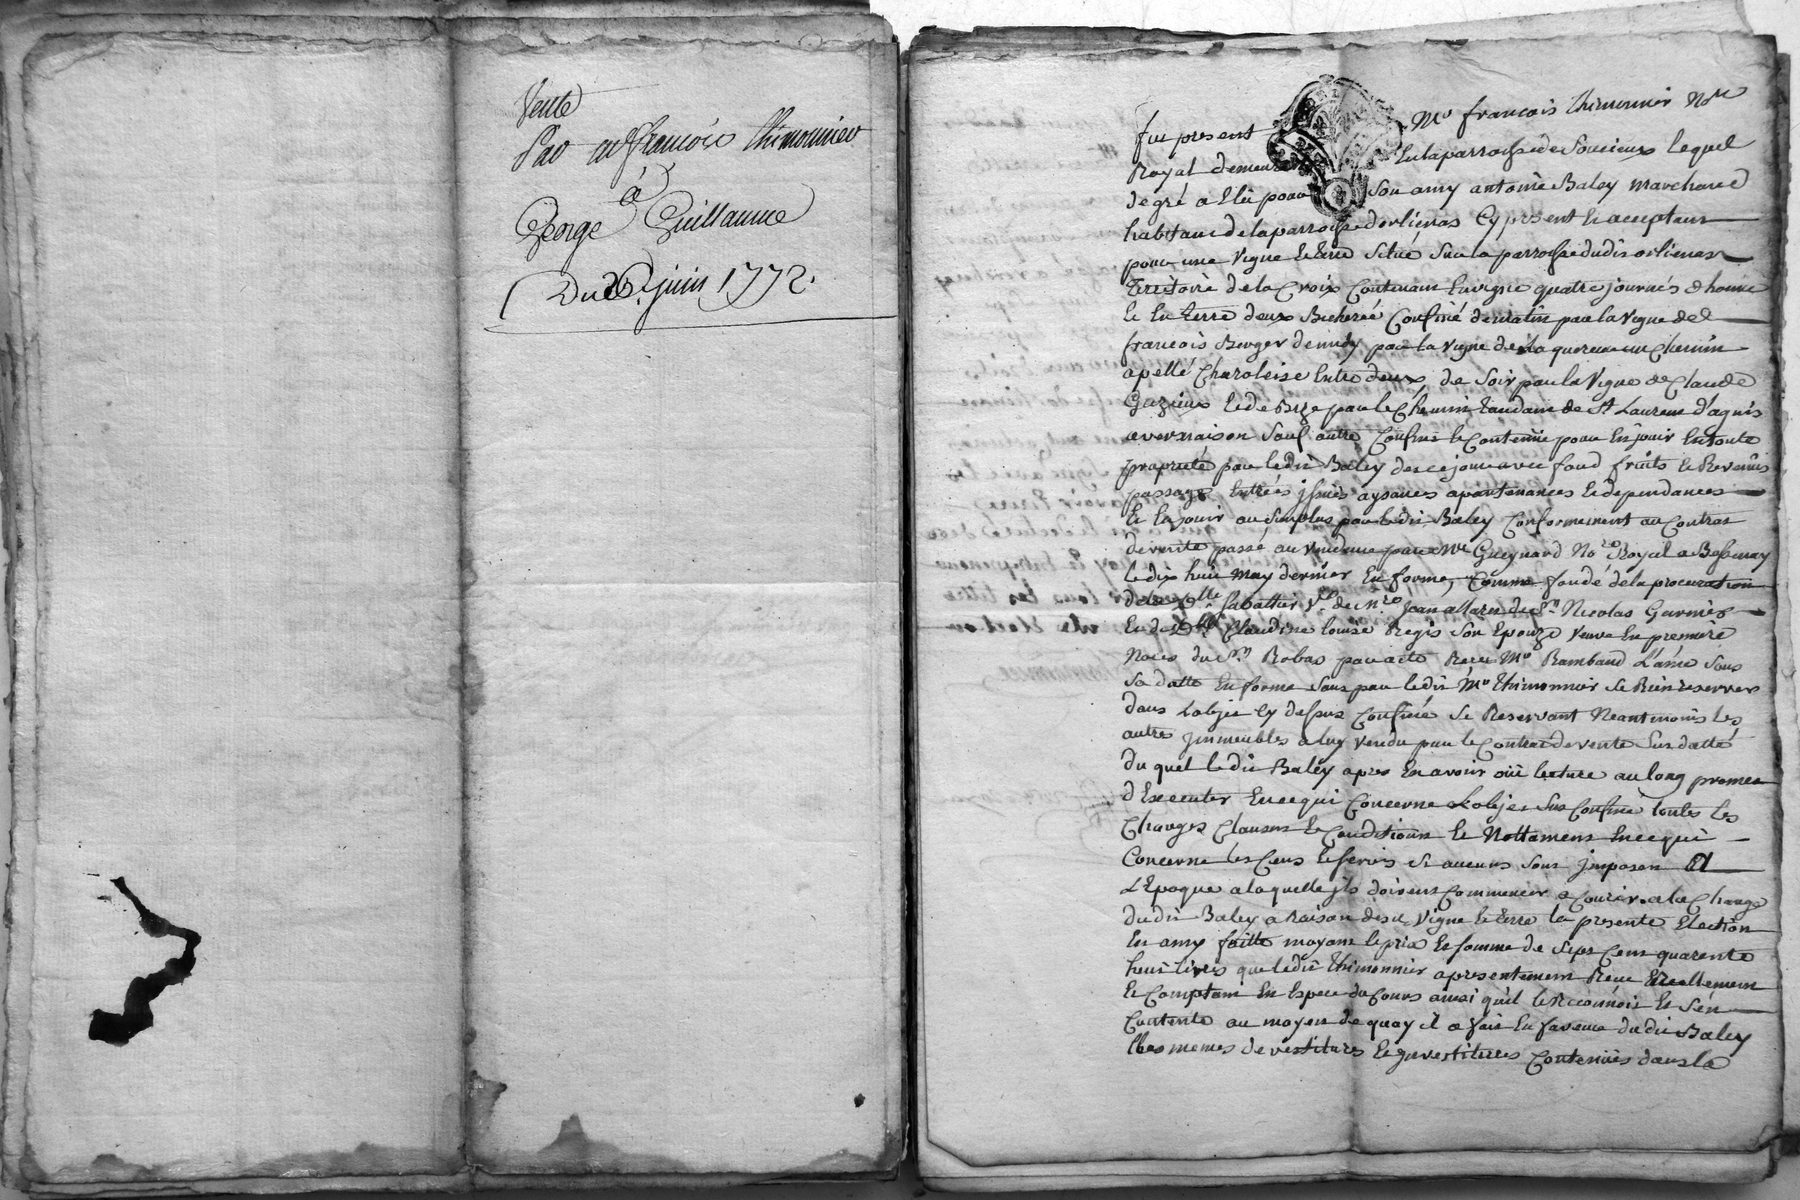 Vente
Par Mr françois thimonnier
à
George Guillaume
Du 26 juin 1772.
fut present Me francois thimonnier Nore
Royal demeurant En la parroisse de Soucieux lequel
de gré a Elû pour Son amy antoine Baley marchand
habitant de la parroisse dorlienas Cy present Et acceptant
pour une vigne Et terre Situé Sur la parroisse dudit orlienas
territoire de la Croix Contenant En vigne quatre journés d'homme
Et En terre deux Bicherée Confiné de matin par la vigne de
francois Berger de midy par la vigne de un Chemin
apellé Charoleise Entre deux, de Soir par la vigne de Claude
Gazieux Et de Bize par le Chemin tandant de St Laurent d'agnis
a vernaison Sauf autre Confins Et Contenüe pour En jouir En toute
proprieté par ledit Baley des ce jour avec fond fruits Et Revenûs
passage Entrées jssües aysances apartenances Et dependances
Et En jouir au Surplus par ledit Baley Conformement au Contrat
de vente passé au vendeur par Me Guynard Nore Royal a Bessenay
le dix huit may dernier En forme, Comme fondé de la procuration
de Dlle Sabattier ve. de Me Jean du Sr. Nicolas Garnier
Et de Dlle Claudine louise Regis Son Epouze veuve En premiere
Noces du Sr. Robas par acte Receu Me Rambaud L'ainé Sous
Sa datte En forme Sans par ledit Me thimonnier Se Rien reserver
dans L'objet Cy dessus Confiné Se Reservant Neantmoins les
autres jmmeubles a luy vendu par le Contrat de vente Sus datté
du quel ledit Baley apres En avoir oüi lecture au long promet
d'Executer En ce qui Concerne L'objet Sus Confiné toutes les
Charges Clauses Et Conditions Et Nottament En ce qui
Concerne les Cens Et Servis Si aucuns Sont jmposés a
L'Epoque a laquelle jls doivent Commencer a Courir a la Charge
dudit Baley a Raison des vigne Et terre la presente Election
En amy faitte moyant le prix Et Somme de Sept Cent quarente
huit livres que ledit thimonnier a presentement Reçue Reellement
Et Comptant En Espece du Cours ainsi qu'il le Reconnoit Et S'en
Contente au moyen de quoy il a fait En faveur du dit Baley
les memes devestitures Et jnvestitures Contenües dans la